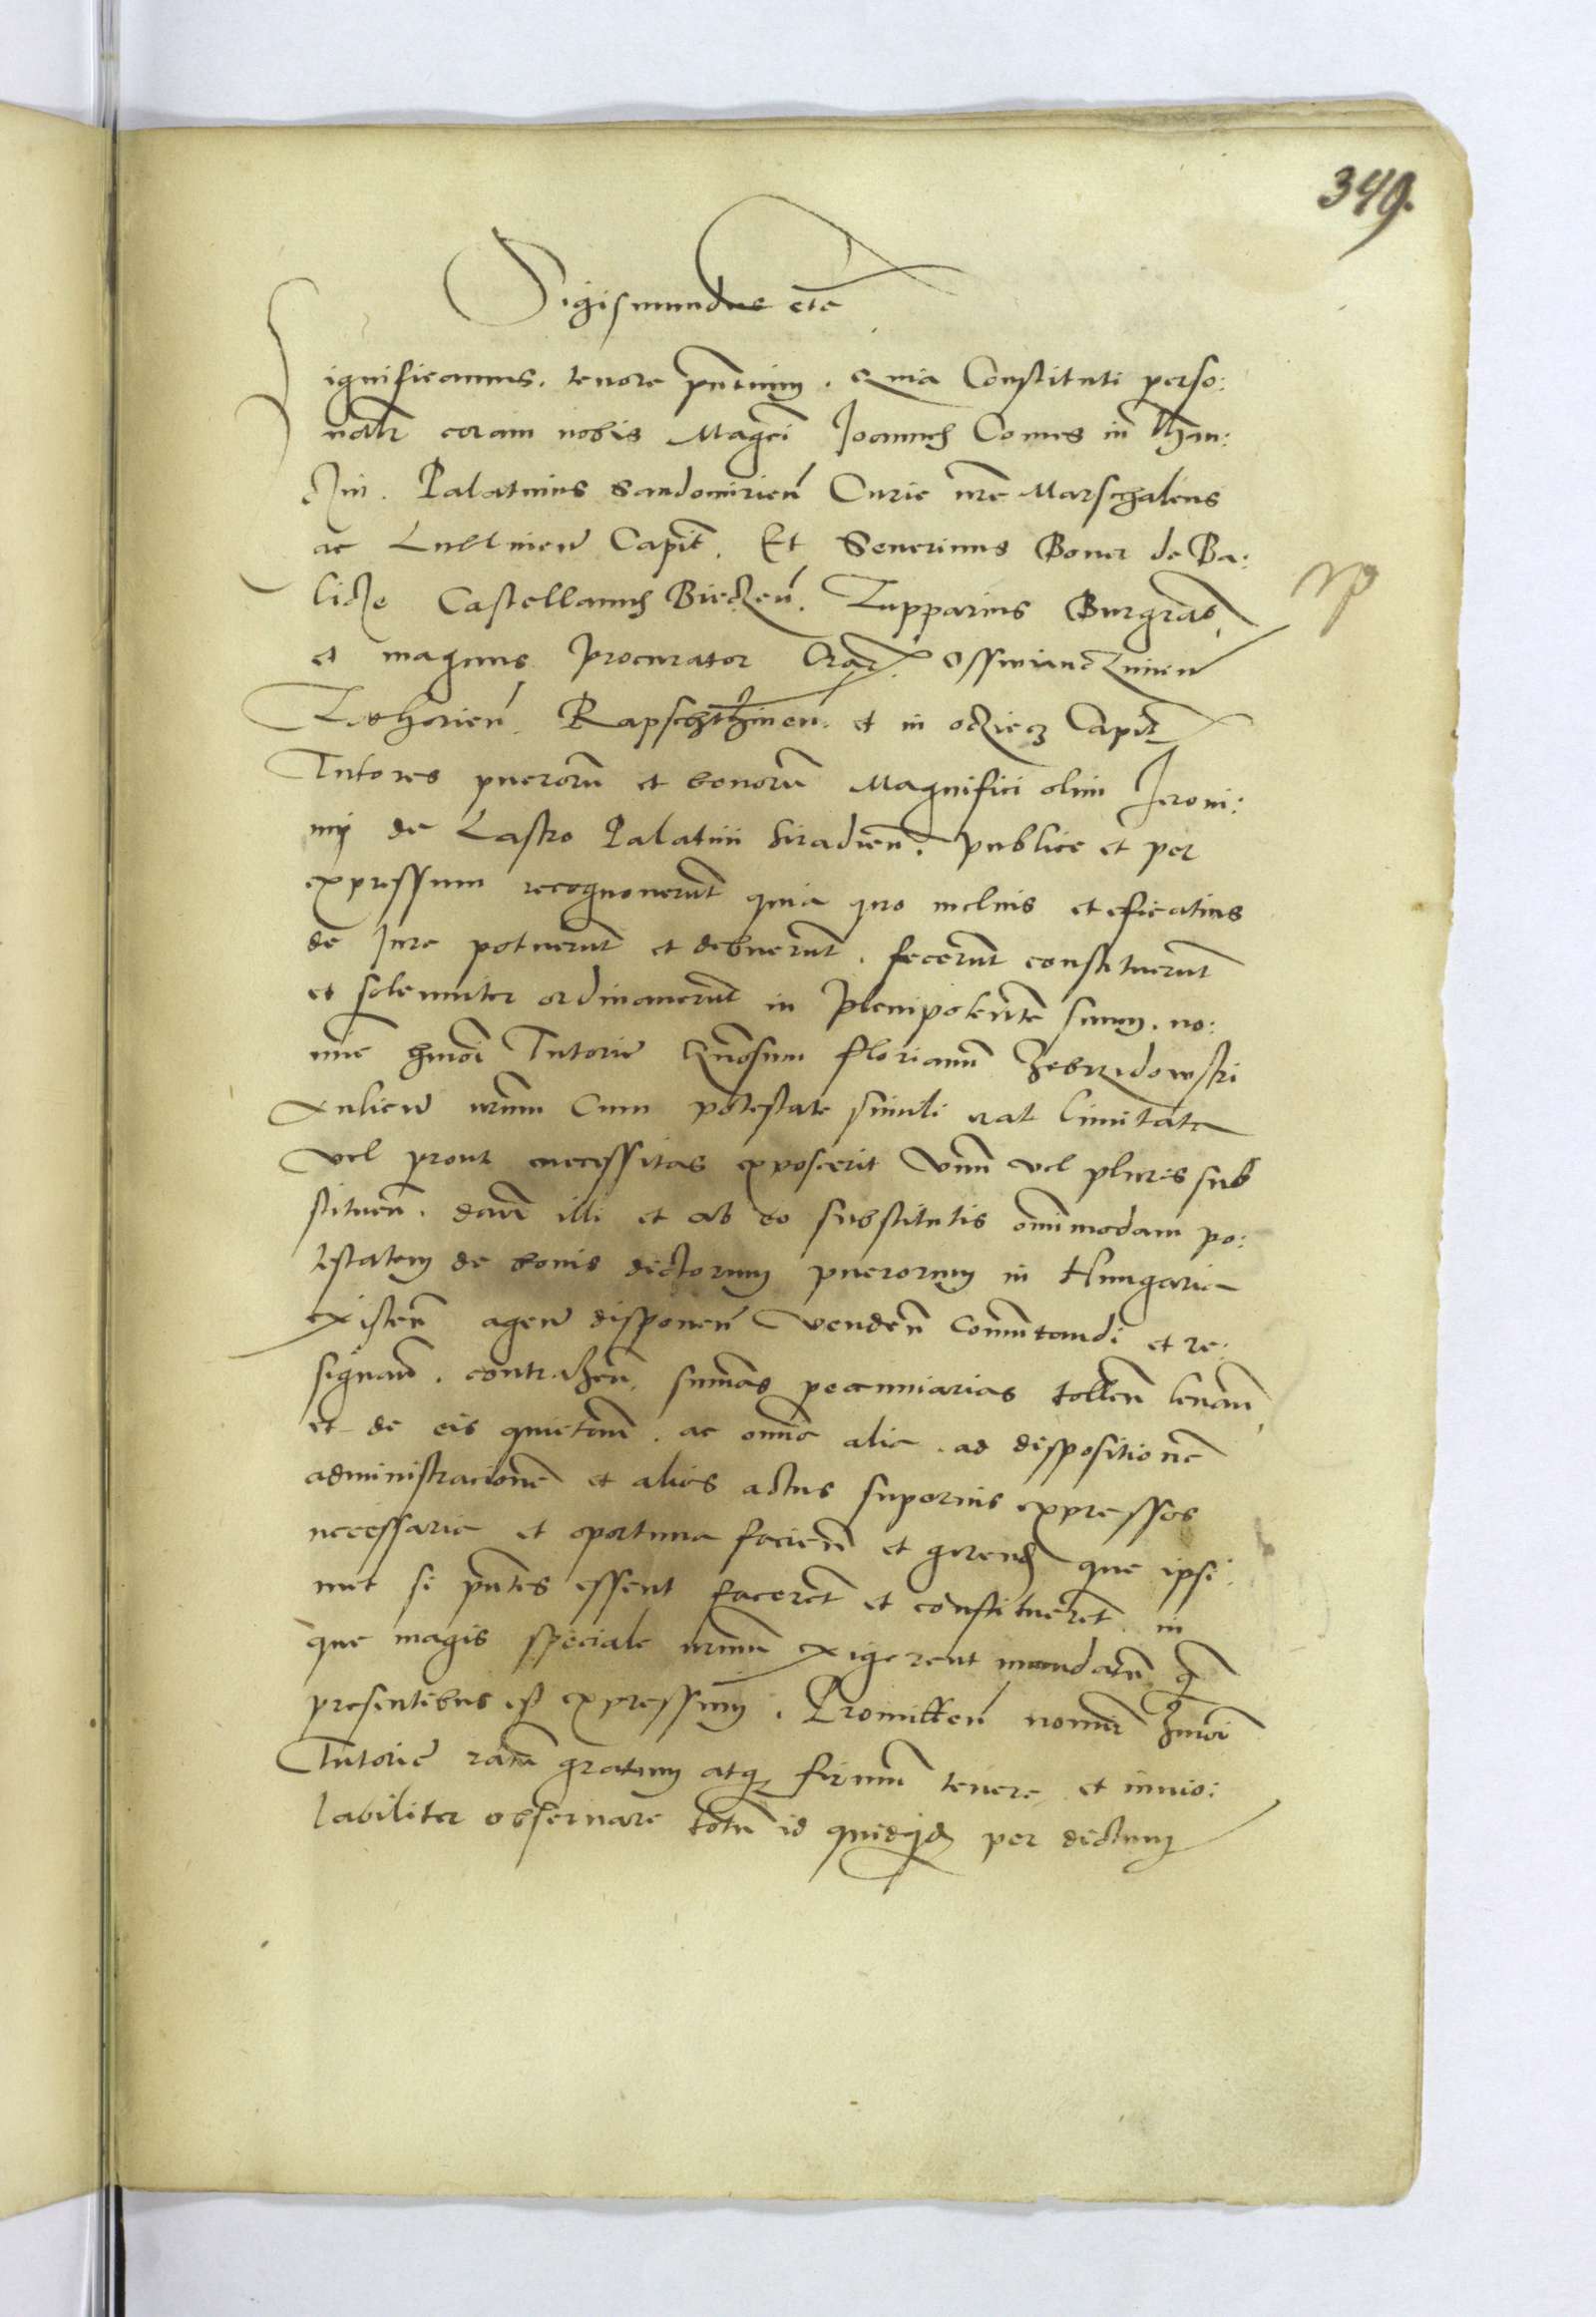 349.
Sigismundus etc
Significamus. tenore pntium. quia Constituti perso:
nalr coram nobis Magci Joannes Comes in Than:
czin. Palatinus Sandomirien Curie nre Marschalcus
ac Lublinen Capit. Et Severinus Boner de Ba:
licze Castellanus Bieczen. Zupparius Burgrab.
et magnus procurator Crac. Osswianczimen
Zathorien. Rapschthinen. et in ocziecz Capit
Tutores puerorum et bonorum Magnifici olim Jeroni:
mj de Lasko Palatini Siradien. publice et per
expressum recognoverunt quia quo melius et eficatius
de Jure potuerunt et debuerunt. fecerunt constituerunt
et solemniter ordinaverunt in plenipotentem suum. no:
mine hmoi Tutorie Gnosum Florianum Zebrzidowski
Aulicum nrum Cum potestate simili vat limitata
vel prout necessitas exposcerit unum vel plures sub
stituen. dan illi et ab eo substitutis omnimodam po:
testatem de bonis dictorum puerorum in Hungaria
existen agen disponen venden Commutandi et re:
signan. contrahen. sumas pecuniarias tollen levan
et de eis quietan. ac omnia alia. ad dispositionem
administracionem et alios actus superius expressos
necessaria et oportuna facien et gerend que ipsi:
met si pntes essent facerent et constituerent. in
que magis speciale nrmum exigerent mandatum q
presentibus est expressum. Promitten nomine hmoi
Tutorie ratum gratum atq firmum tenere et invio:
labiliter observare totum id quidquid per dictum